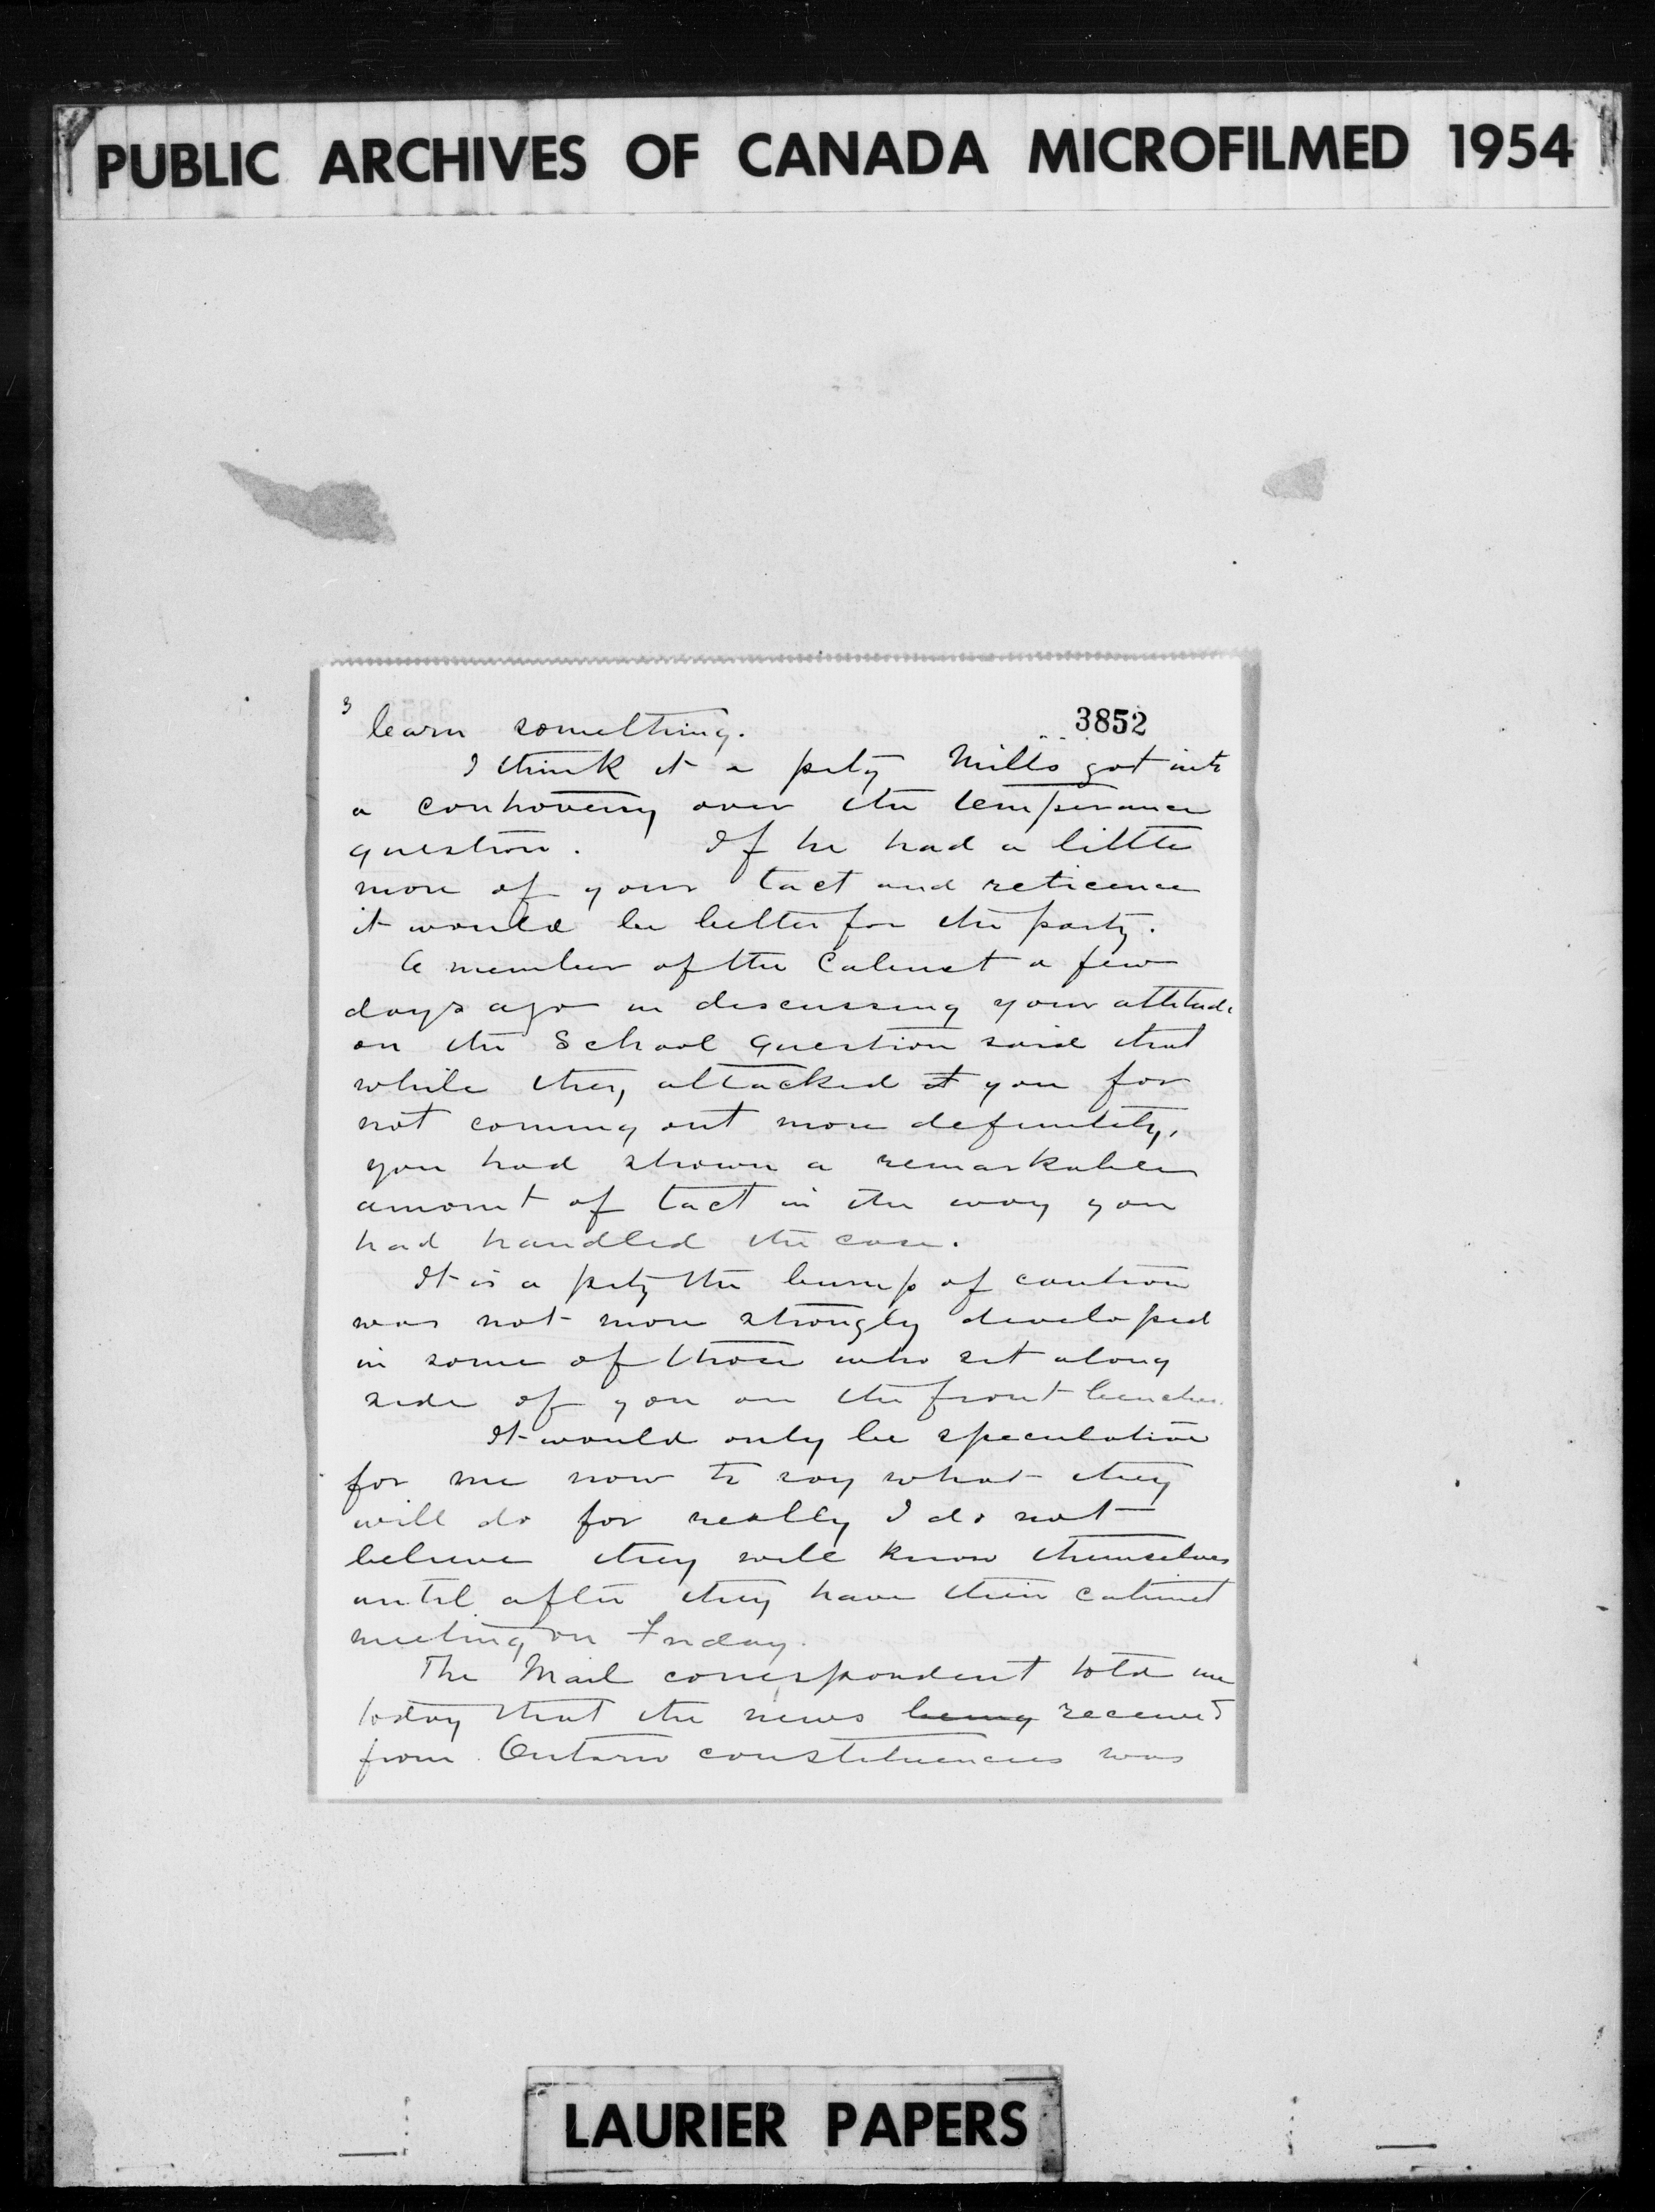 PUBLIC ARCHIVES OF CANADA MICROFILMED 1954
3
3852
learn something.
I think it a pity Mills got into
a controversy over the temperance
question. If he had a little
more of your tact and reticence
it would be better for the party.
A member of the Cabinet a few
days ago in discussing your attitude
on the School Question said that
while they attacked you for
not coming out more definitely,
you had shown a remarkable
amount of tact in the way you
had handled the case.
It is a pity the bump of caution
was not more strongly developed
in some of those who sit along
side of you on the front benches.
It would only be speculation
for me now to say what they
will do for really I do not
believe they will know themselves
until after they have their cabinet
meeting on Friday.
The Mail correspondent told me
today that the news being received
from Ontario constituencies was
LAURIER PAPERS